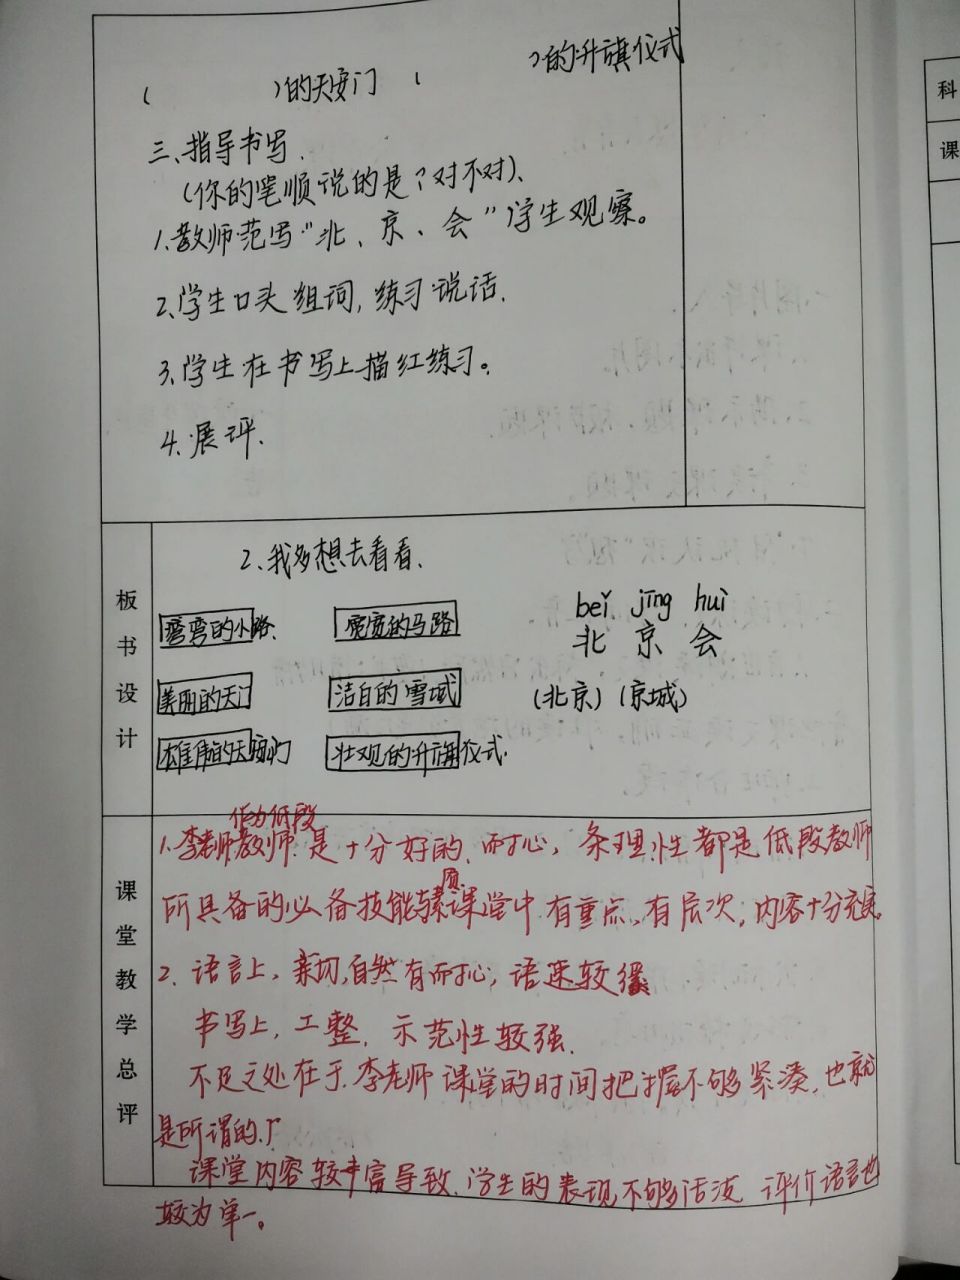 (　　　)的天安门　(　　　)的升旗仪式
三、指导书写.
(你的笔顺说的是?对不对)、
1、教师范写“北、京、会”学生观察。
2、学生口头组词,练习说话.
3、学生在书写上描红练习。
4、展评.
板书设计
2、我多想去看看.
弯弯的小路、 宽宽的马路
美丽的天门 洁白的雪域
雄伟的天安门 壮观的升旗仪式.
běi jīng huì
北 京 会
(北京) (京城)
课堂教学总评
作为低段
1、李老师教师.是十分好的、耐心,条理性都是低段教师
所具备的必备技能与素质.课堂中有重点,有层次,内容十分充实.
2、语言上,亲切,自然有耐心,语速较缓
书写上,工整,示范性较强.
不足之处在于.李老师课堂的时间把握不够紧凑,也就
是所谓的.
课堂内容较丰富导致.学生的表现不够活泼 评价语言也
较为单一。
科
课